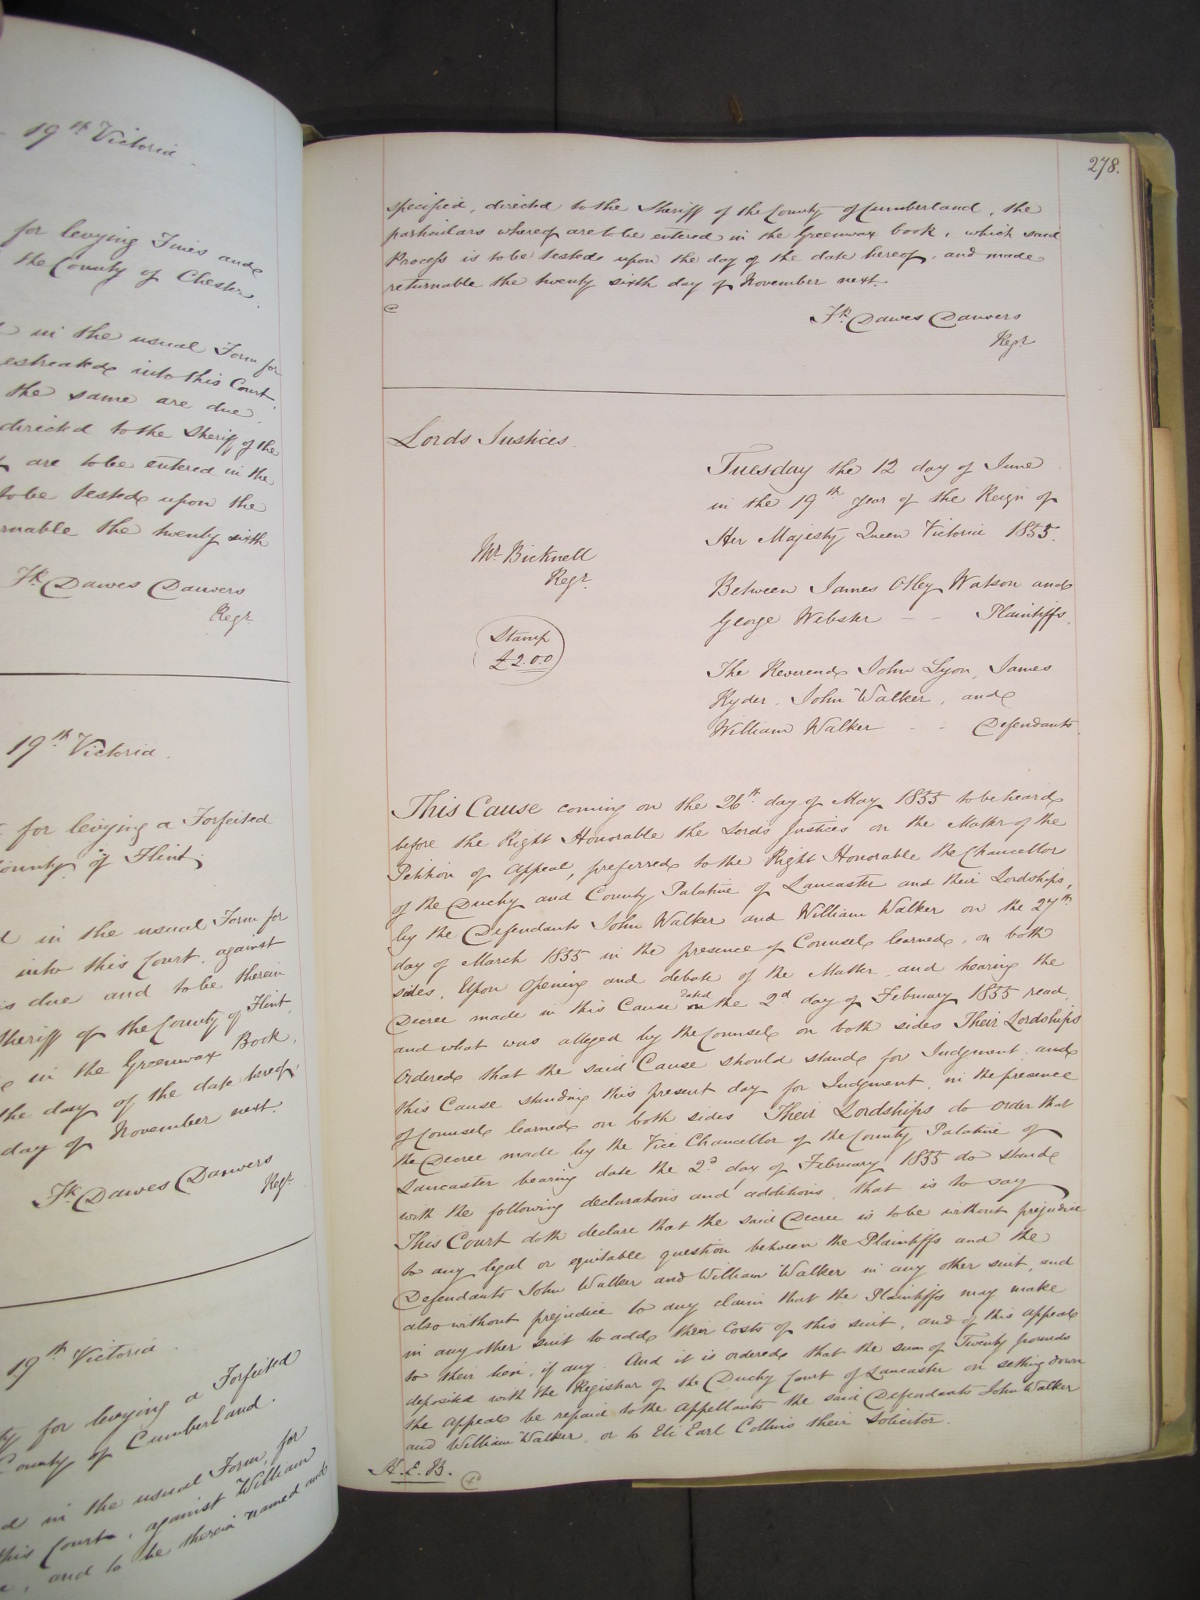 19th Victoria
for levying Fines and
the County of Chester.
in the usual Form for
estreated into this Court
the same are due.
directed to the Sheriff of the
are to be entered in the
to be tested upon the
returnable the twenty sixth
Fk Dawes Danvers
Regr
19th Victoria.
for levying a Forfeited
County of Flint
in the usual Form for
into this Court, against
is due and to be therein
Sheriff of the County of Flint
in the Greenwax Book,
the day of the date hereof,
day of November next.
Fk Dawes Danvers
Regr
19th Victoria.
for levying a Forfeited
County of Cumberland.
in the usual Form, for
this Court, against William
, and to be therein named and
278.
specified, directed to the Sheriff of the County of Cumberland, the
particulars whereof are to be entered in the Greenwax book, which said
Process is to be tested upon the day of the date hereof, and made
returnable the twenty sixth day of November next.
Fk Dawes Danvers
Regr
Lords Justices.
Tuesday the 12 day of June
in the 19th Year of the Reign of
Her Majesty Queen Victoria 1855.
Mr Bicknell
Regr
Between James Otley Watson and
George Webster - - Plaintiffs.
Stamp
£2.0.0
The Reverend John Lyon, James
Ryder, John Walker, and
William Walker - - Defendants
This Cause coming on the 26th day of May 1855 to be heard
before the Right Honorable the Lords Justices on the Matter of the
Petition of Appeal, preferred to the Right Honorable the Chancellor
of the Duchy and County Palatine of Lancaster and their Lordships,
by the Defendants John Walker and William Walker on the 27th
day of March 1855 in the presence of Counsel learned, on both
sides, Upon Opening and debate of the Matter, and hearing the
Decree made in this Cause dated the 2d day of February 1855 read,
and what was alleged by the Counsel on both sides Their Lordships
Ordered that the said Cause should stand for Judgment, and
this Cause standing this present day for Judgment, in the presence
of Counsel learned on both sides Their Lordships do order that
the Decree made by the Vice Chancellor of the County Palatine of
Lancaster bearing date the 2d day of February 1855 do stand
with the following declarations and additions, that is to say
This Court doth declare that the said Decree is to be without prejudice
to any legal or equitable question between the Plaintiffs and the
Defendants John Walker and William Walker in any other suit, and
also without prejudice to any claim that the Plaintiffs may make
in any other suit to add their Costs of this suit, and of this appeal
to their lien, if any. And it is ordered that the sum of Twenty pounds
deposited with the Registrar of the Duchy Court of Lancaster on setting down
the Appeal be repaid to the Appellants the said Defendants John Walker
and William Walker, or to Eli Earl Collins their Solicitor.
H. E. B.